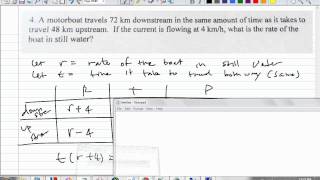 4. A motorboat travels 72 km downstream in the same amount of time as it takes to
travel 48 km upstream. If the current is flowing at 4 km/h, what is the rate of the
boat in still water?
let r = rate of the boat in still water
let t = time it take to travel both way (same)
R T D
down r + 4
up r - 4
t (r + 4) =